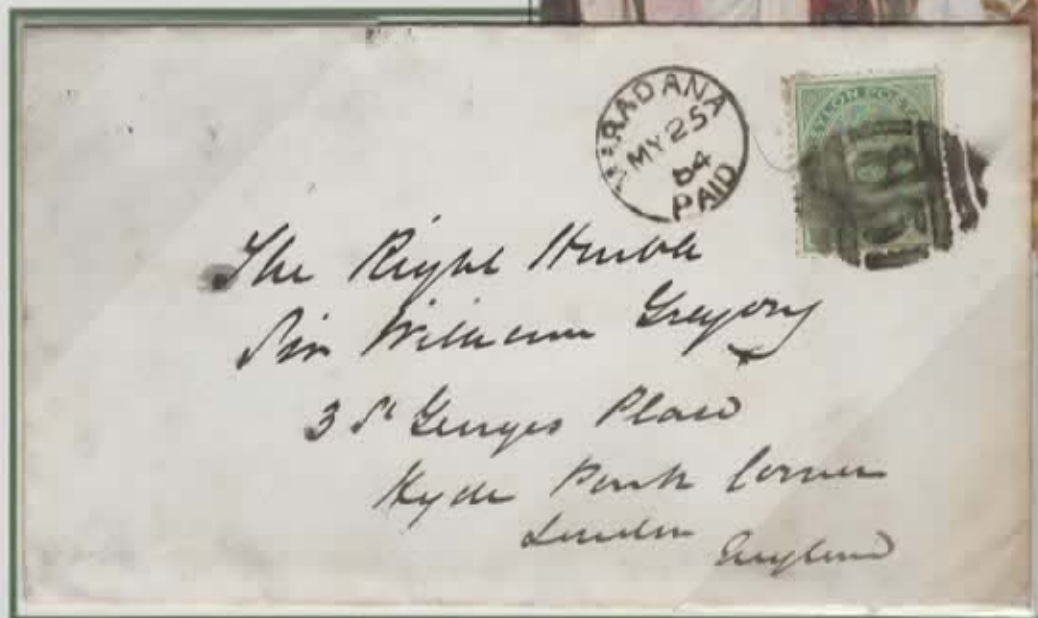 MARADANA
MY 25
84
PAID
CEYLON POSTAGE
The Right Honble
Sir William Gregory
3 St Georges Place
Hyde Park Corner
London
England